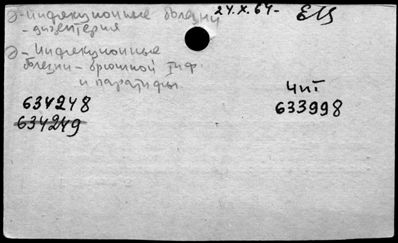 Э-Инфекционные болезни
24.X.64-
ЕЦ
-дизентерия
Э-Инфекционные
болезни-брюшной тиф
и паратифы
чит
634248
633998
634249